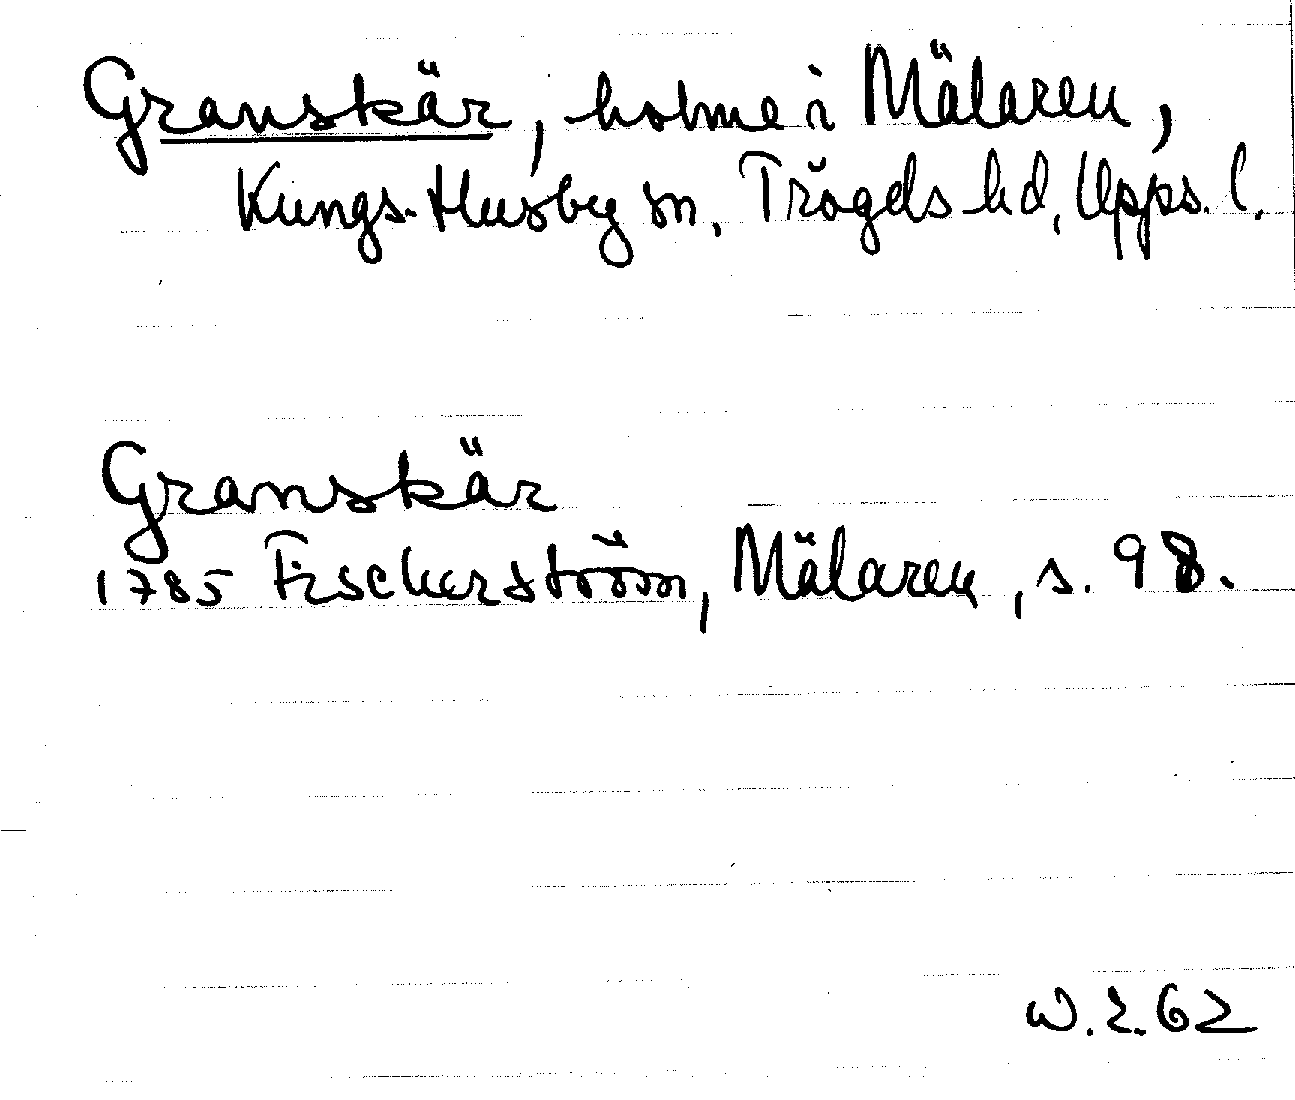 Granskär, holme i Mälaren,
Kungs-Husby sn, Trögds hd, Upps. l.
Granskär
1785 Fischerström, Mälaren, s. 98.
W.E.62